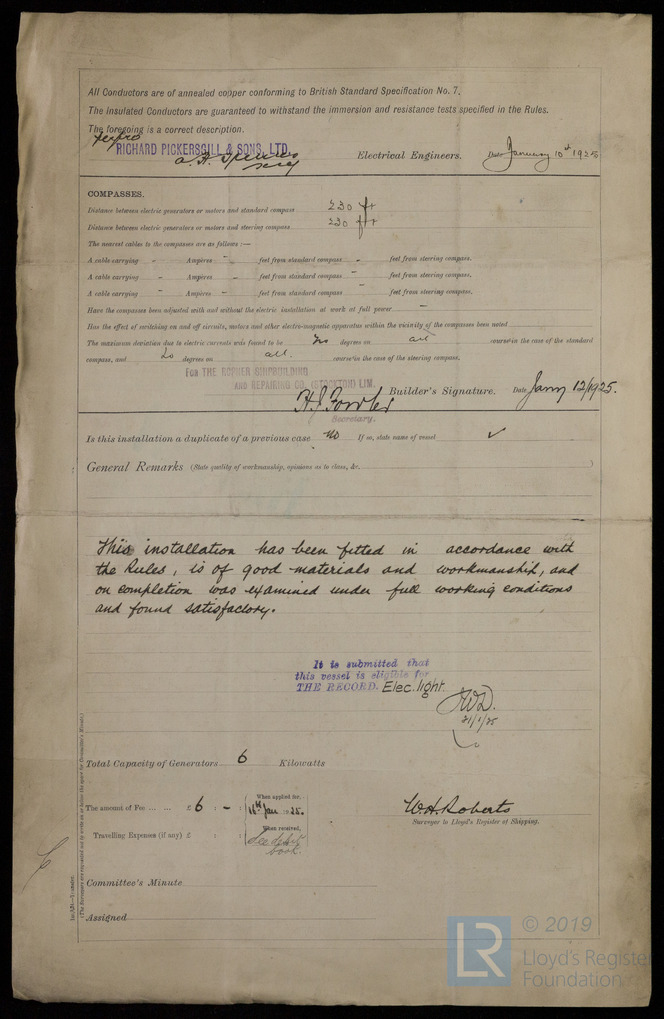 All Conductors are of annealed copper conforming to British Standard Specification No. 7.
The Insulated Conductors are guaranteed to withstand the immersion and resistance tests specified in the Rules.
The foregoing is a correct description.
RICHARD PICKERSGILL & SONS, LTD.
Electrical Engineers. Date January 10th 1925
COMPASSES.
Distance between electric generators or motors and standard compass 230 ft
Distance between electric generators or motors and steering compass 230 ft
The nearest cables to the compasses are as follows :—
A cable carrying - Ampères - feet from standard compass - feet from steering compass.
A cable carrying - Ampères - feet from standard compass - feet from steering compass.
A cable carrying - Ampères - feet from standard compass - feet from steering compass.
Have the compasses been adjusted with and without the electric installation at work at full power -
Has the effect of switching on and off circuits, motors and other electro-magnetic apparatus within the vicinity of the compasses been noted
The maximum deviation due to electric currents was found to be No degrees on all course in the case of the standard
compass, and No degrees on all. course in the case of the steering compass.
FOR THE ROPNER SHIPBUILDING
AND REPAIRING CO. (STOCKTON) LIM.
H.J. Fowler Builder's Signature. Date Jany 12/1925.
Secretary.
Is this installation a duplicate of a previous case No If so, state name of vessel ✓
General Remarks (State quality of workmanship, opinions as to class, &c.)
This installation has been fitted in accordance with
the Rules, is of good materials and workmanship, and
on completion was examined under full working conditions
and found satisfactory.
It is submitted that
this vessel is eligible for
THE RECORD. Elec. light.
21/1/25
Total Capacity of Generators 6 Kilowatts
The amount of Fee ... ... £ 6 : - : When applied for, 16th Jan 1925.
W.H. Roberts
Surveyor to Lloyd's Register of Shipping.
Travelling Expenses (if any) £ : : When received,
Committee's Minute
Assigned
(The Surveyors are requested not to write on or below the space for Committee's Minute.)
© 2019
LR
Lloyd's Register
Foundation